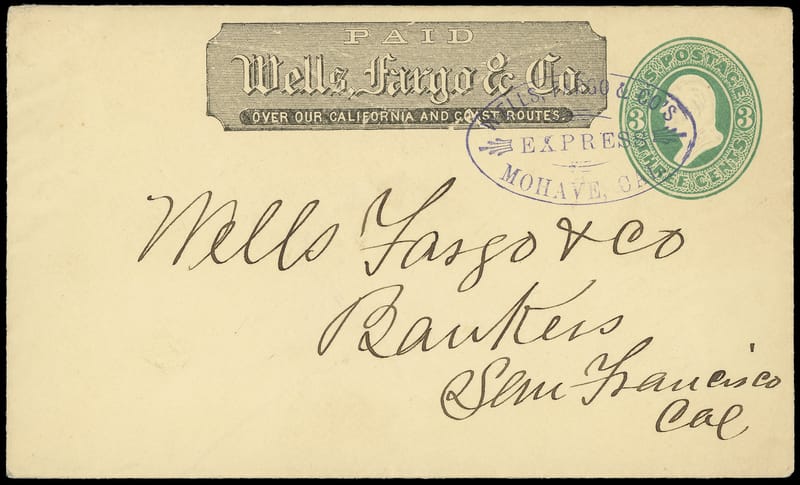 PAID
Wells, Fargo & Co.
OVER OUR CALIFORNIA AND COAST ROUTES.
WELLS, FARGO & CO'S
EXPRESS
MOHAVE, CAL
U.S. POSTAGE
3 3
THREE CENTS
Wells Fargo & Co
Bankers
San Francisco
Cal